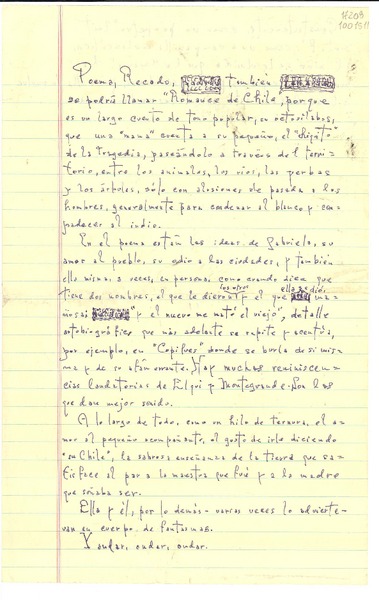 Poema, Recado, también
se podría llamar "Romance de Chile, porque
es un largo cuento de tono popular, en octosílabos,
que una "mama" cuenta a su pequeño, el "chiquito"
de la tragedia, paseándolo a través del terri-
torio, entre los animales, los ríos, las yerbas
y los árboles, sólo con alusiones de pasada a los
hombres, generalmente para condenar al blanco y com-
padecer al indio.
En el poema están las ideas de Gabriela, su
amor al pueblo, su odio a las ciudades, y también
ella misma, a veces, en persona, como cuando dice que
los otros ella se dió,
tiene dos nombres, el que le dieron y el que
y el nuevo me mató el viejo", detalle
autobiográfico que más adelante se repite y acentúa,
por ejemplo, en "Copihues" donde se burla de si mis-
ma y de su afán errante. Hay muchas reminiscen-
cias laudatorias de Elqui y Montegrande. Son los
que dan mejor sonido.
A lo largo de todo, como un hilo de ternura, el a-
mor al pequeño acompañante, el gusto de irle diciendo
"su Chile", la sabrosa enseñanza de la tierra que sa-
tisface al par a la maestra que fué y a la madre
que soñaba ser.
Ella y él, por lo demás - varias veces lo advierte-
van en cuerpo de fantasmas.
Y andar, andar, andar.